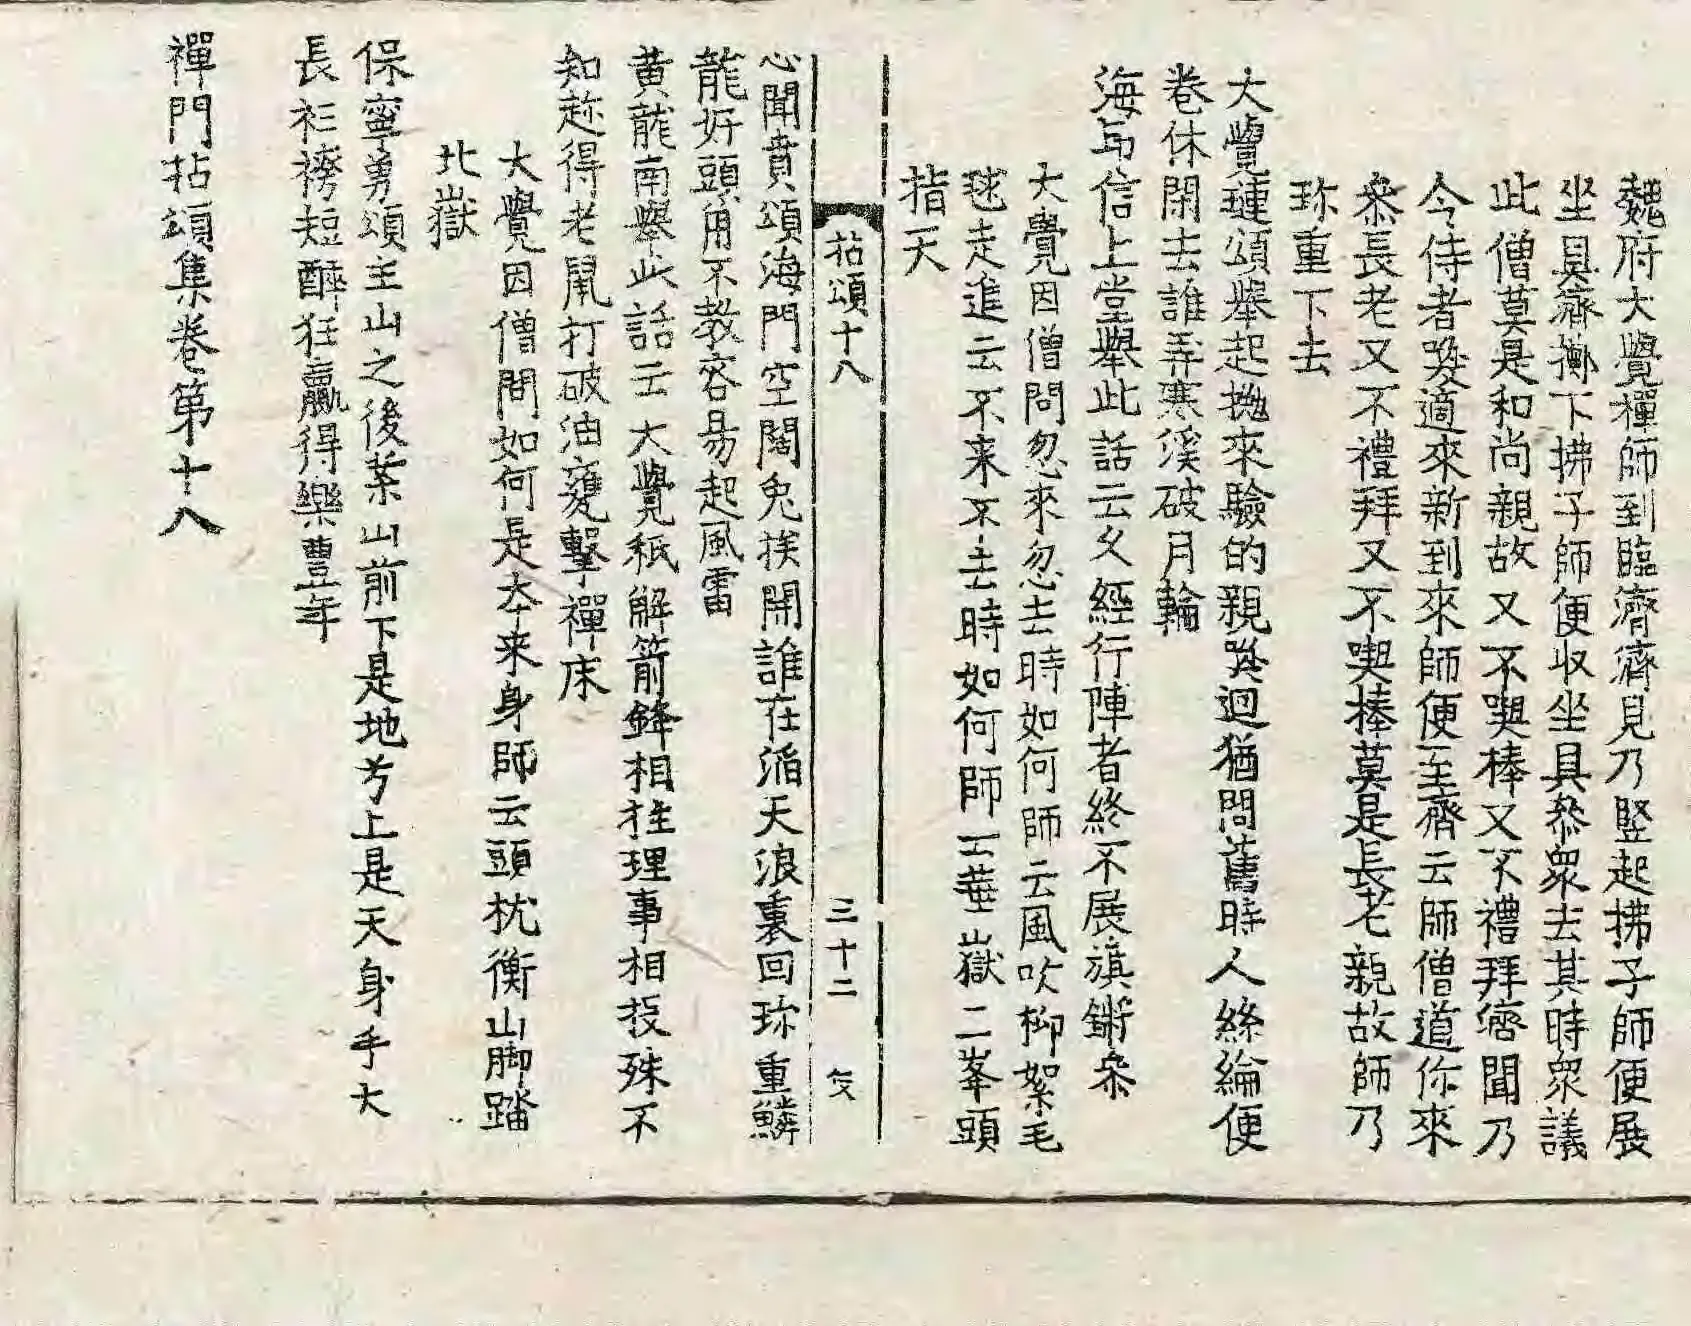 魏府大覺禪師到臨濟濟見乃竪起拂子師便展
坐具濟擲下拂子師便收坐具叅衆去其時衆議
此僧莫是和尚親故又不喫棒又不禮拜濟聞乃
今侍者喚適來新到來師便至濟云師僧道你來
叅長老又不禮拜又不喫棒莫是長老親故師乃
珎重下去
大覺璉頌舉起拋來驗的親喚迴猶問舊時人絲綸便
卷休閑去誰弄寒溪破月輪
海印信上堂舉此話云久經行陣者終不展旗鏘叅
大覺因僧問忽來忽去時如何師云風吹柳絮毛
毬走進云不来不去時如何師云華嶽三峯頭
指天
拈頌十八 三十二
心聞賁頌海門空闊兔挨開誰在滔天浪裏回珎重鱗
龍好頭角不教容易起風雷
黃龍南舉此話云大覺秖解箭鋒相拄理事相投殊不
知趂得老鼠打破油甕擊禪床
大覺因僧問如何是本来身師云頭枕衡山脚踏
北嶽
保寧勇頌主山之後案山前下是地兮上是天身手大
長衫袴短醉狂贏得樂豊年
禪門拈頌集卷第十八